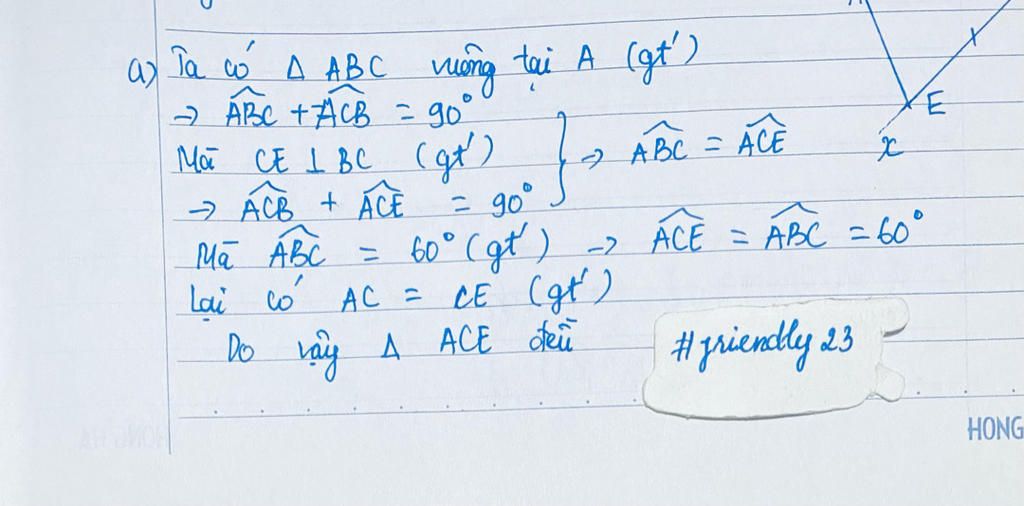 a) Ta có Δ ABC vuông tại A (gt)
→ \widehat{ABC} + \widehat{ACB} = 90°
Mà CE ⊥ BC (gt)
} → \widehat{ABC} = \widehat{ACE}
→ \widehat{ACB} + \widehat{ACE} = 90°
Mà \widehat{ABC} = 60° (gt) → \widehat{ACE} = \widehat{ABC} = 60°
Lại có AC = CE (gt)
Do vậy Δ ACE đều
E
x
#friendly23
HONG